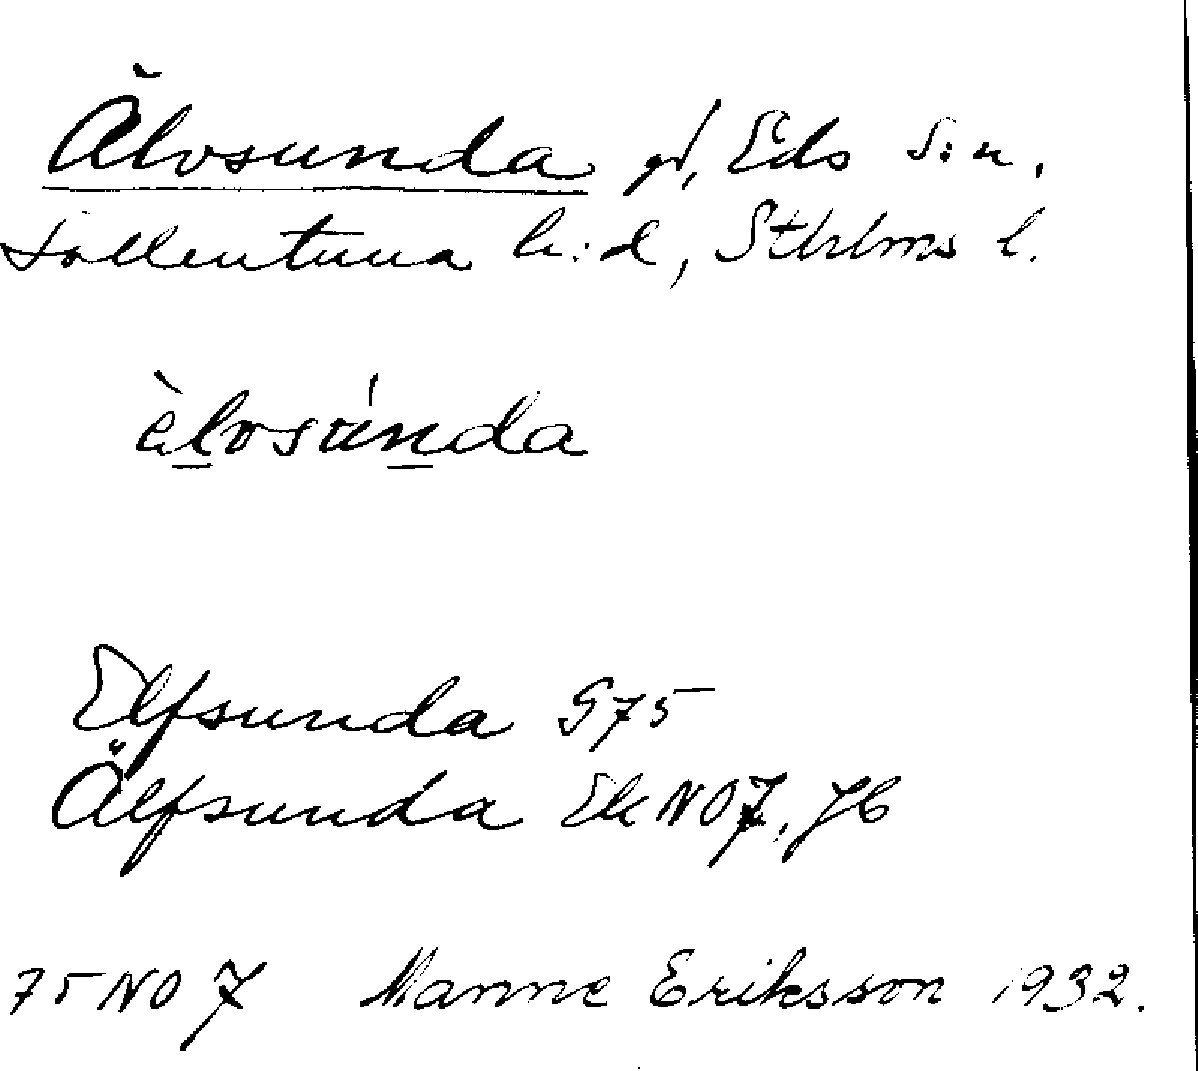 Älvsunda gd, Eds s:n,
Sollentuna h:d, Sthlms l.
älvsúnda
Elfsunda G75
Älfsunda Ek NO7, Jb
75 NO 7 Manne Eriksson 1932.